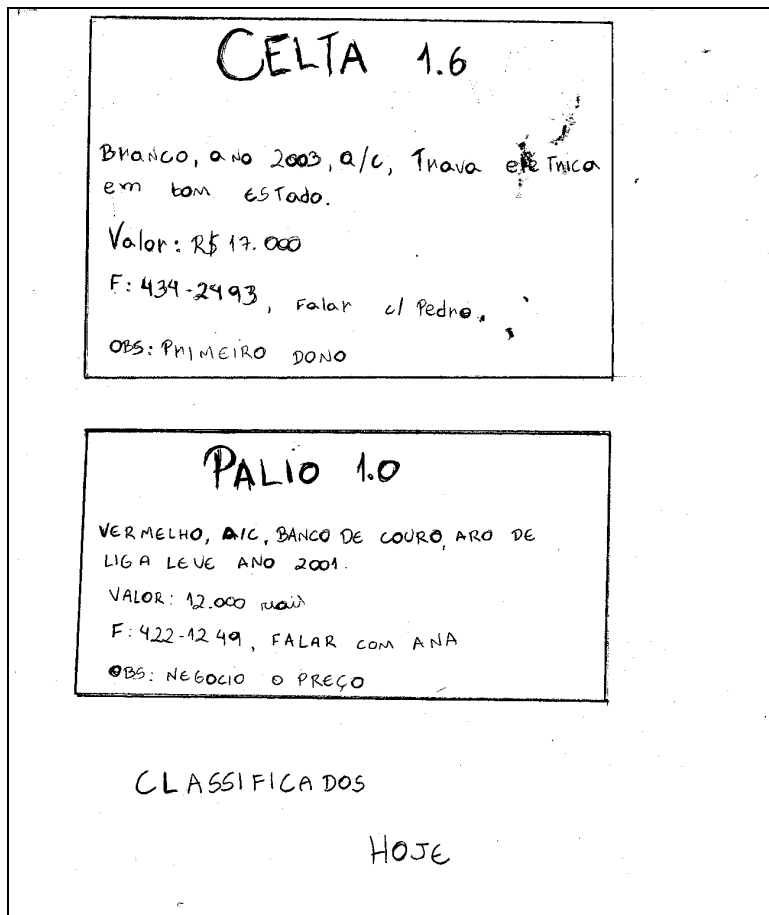 CELTA 1.6
Branco, ano 2003, a/c, Trava eletrica
em bom ESTado.
Valor: R$ 17.000
F: 434-2493, Falar c/ Pedro.
OBS: PRIMEIRO DONO
PALIO 1.0
VERMELHO, A/C, BANCO DE COURO, ARO DE
LIGA LEVE ANO 2001.
VALOR: 12.000 reais
F: 422-1249, FALAR COM ANA
OBS: NEGOCIO O PREÇO
CLASSIFICADOS
HOJE